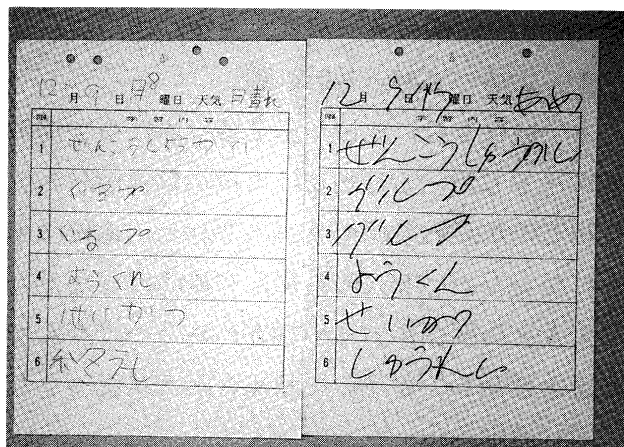 12月9日月曜日 天気 晴れ
限 学習内容
1 ぜんこうしゅうかい
2 ぐるプ
3 いるプ
4 ようくれ
5 せいかつ
6
12月9日 曜日 天気 あめ
限 学習内容
1 ぜんこうしゅうかい
2 グループ
3 グループ
4 ようくん
5 せいかつ
6 しゅうれい